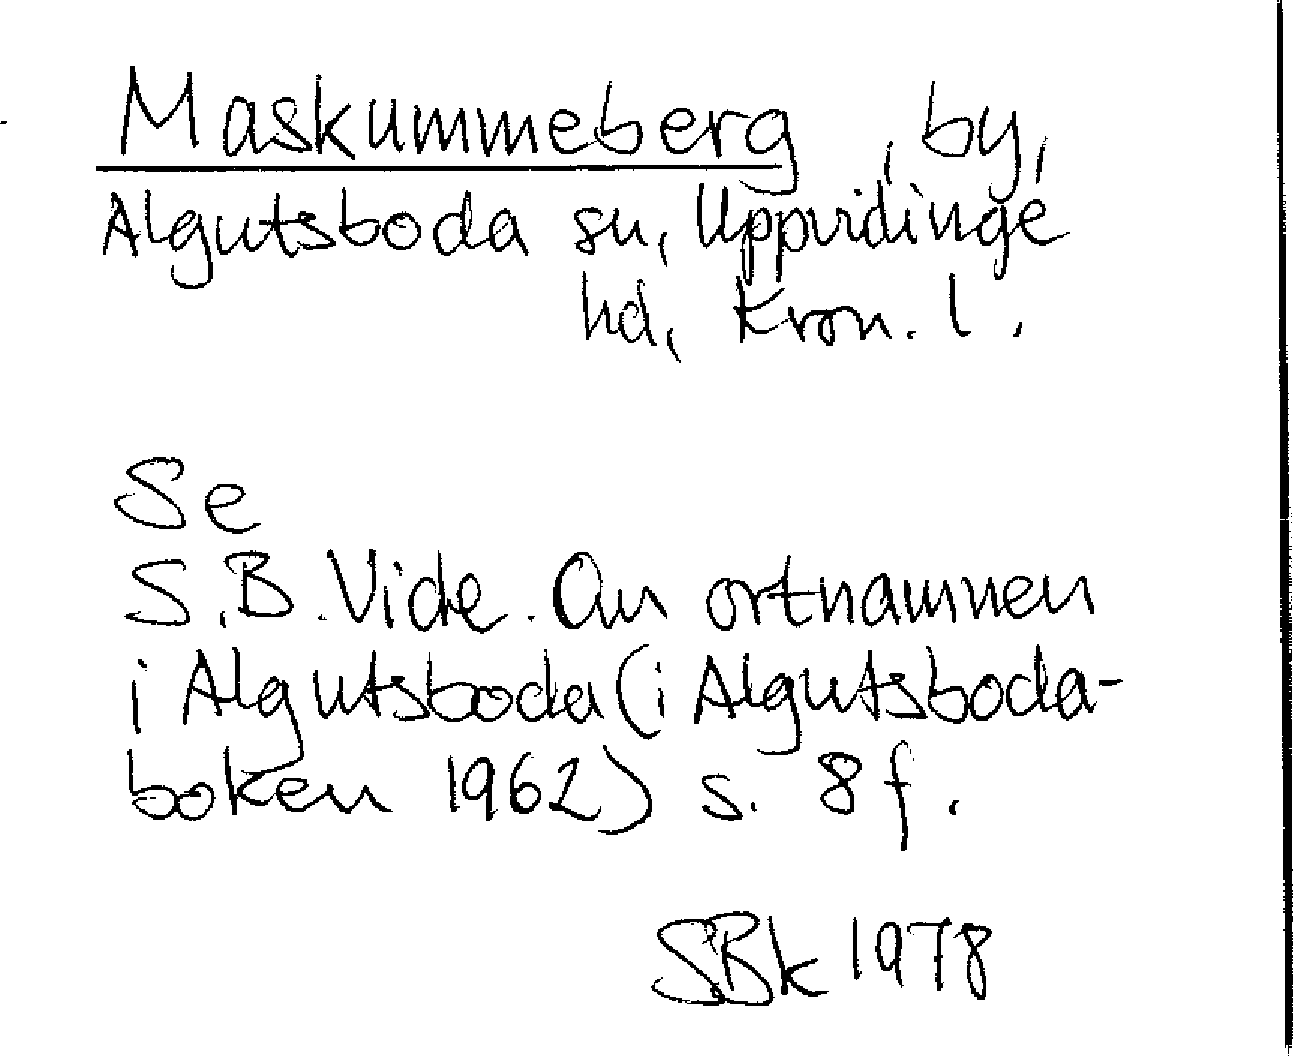 Maskummeberg, by,
Algutsboda sn, Uppvidinge
hd, Kron. l.
Se
S.B. Vide. Om ortnamnen
i Algutsboda (i Algutsboda-
boken 1962) s. 8 f.
SBk 1978